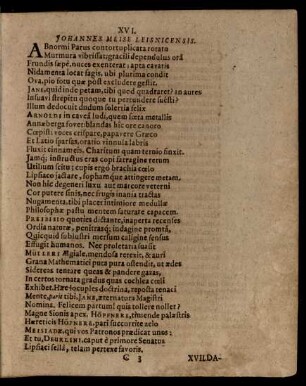 XVI.
JOHANNES MEISE LEISNICENSIS.
ABnormi Parus contortuplicata rotatu
Murmura vibrissat: gracili dependulus orâ
Frundis sæpè, nuces exenterat: apta cavatis
Nidamenta locat fagis. ubi plurima condit
Ova, pio fotu quæ post excludere gestit.
JANE, quid inde petam, tibi qvod quadraret? an aures
Insuavi strepitu quoque tu pertundere suêsti?
Illum dedocuit dudum solertia felix
ARNOLDI in caveâ ludi, quem fœta metallis
Annæberga fovet: blandas hic ore canoro
Cœpisti voces crispare, papavere Græco
Et Latio sparsas, oratio vinnula labris
Fluxit cinnameis. Charitum quam ternio finxit.
Jamq; instructus eras copi ferragine rerum
Utilium scitu; cupis ergo brachia cœlo
Lipsiaco jactare, sophamque attingere metam.
Non hîc degeneri luxu aut marcore veterni
Cor putere sinis, nec frugis inania tractas
Nugamenta. tibi placer intimiore medullæ
Philosophæ pastu mentem saturare capacem.
PREIBISIO quoties dictante, inaperta recenses
Ordia naturæ, penitrasq; indagine promtâ,
Quicquid sublustri mersum caligine sensus
Effugit humanos. Nec proletaria suasit
MÜLLERI Ægiale. mendosa retexit, & auri
Grana Mathematici pura pura ostendit, ut ædes
Sidereas tentare queas & pandere gazas,
In certos tornata gradus quas cochlea cœli
Exhibet. Hæc focuples doctrina, reposta tenaci
Mente, parit tibi, JANE, æternatura Magistri
Nomina. Felicem partum! quia tollere nollet?
Magne Sionis apex HÖPFNERE, tituende palæstris
Hæreticis HÖPFNERE, pari succurrite zelo
MEISIADÆ, qui vos Patronos prædicat unos;
Et tu, DEURLINI, caput è primore Senatus
Lipsiaci sellâ, telam pertexe favoris.
C 3
XVII. DA-